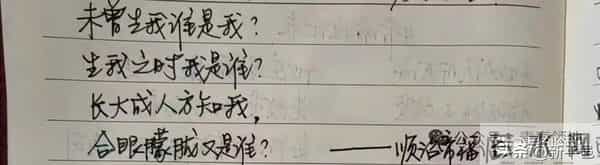 未曾生我谁是我？
生我之时我是谁？
长大成人方知我，
合眼朦胧又是谁？——顺治帝福